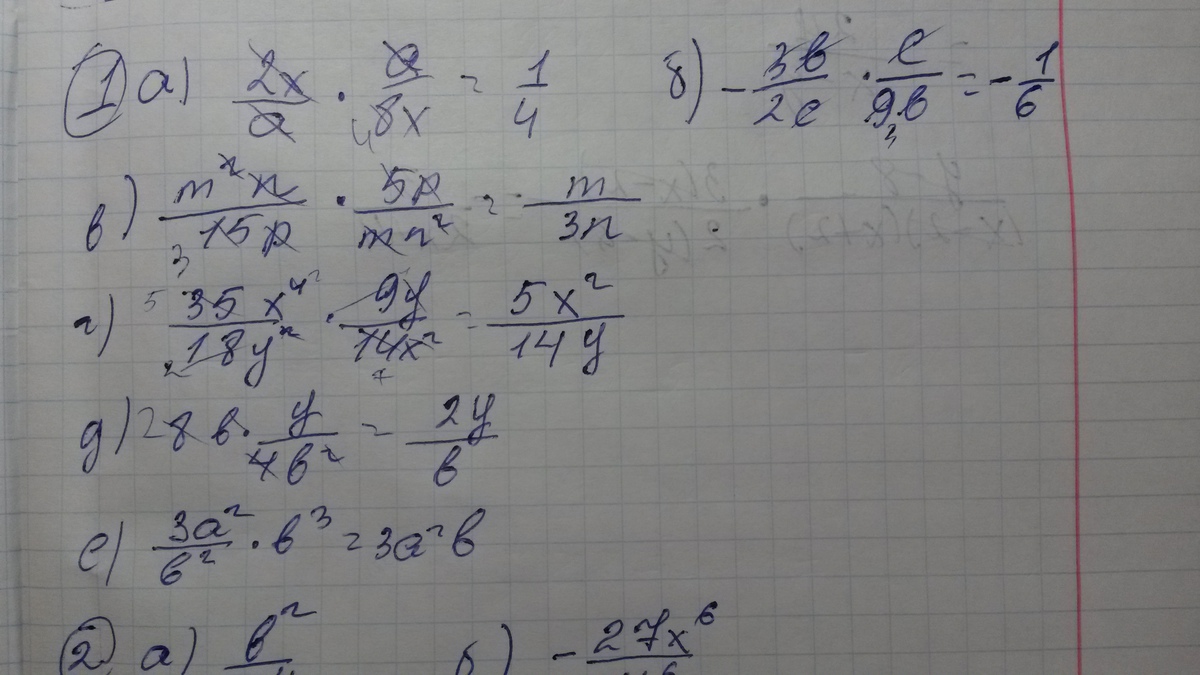 1 а) 2x/a · a/8x = 1/4 б) - 3в/2c · c/9в = - 1/6
в) m²n/15p · 5p/mn² = m/3n
г) 35x⁴/18y² · 9y/14x² = 5x²/14y
д) 8в · y/4в² = 2y/в
е) 3a²/в² · в³ = 3a²в
2 а) в² б) - 27x⁶